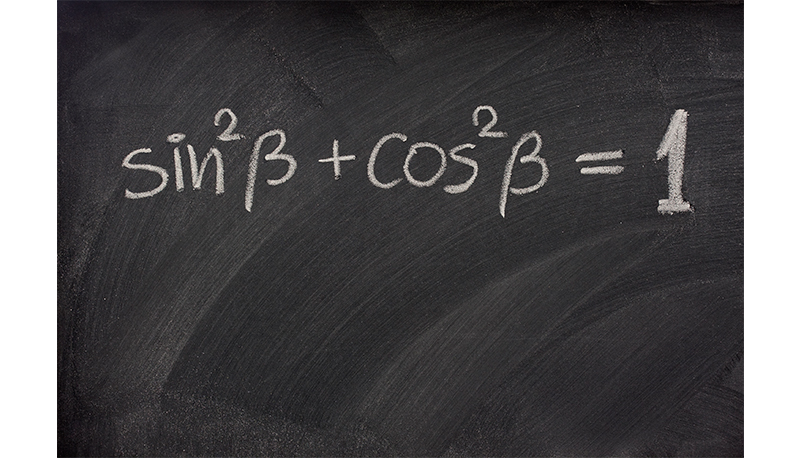 sin²β + cos²β = 1